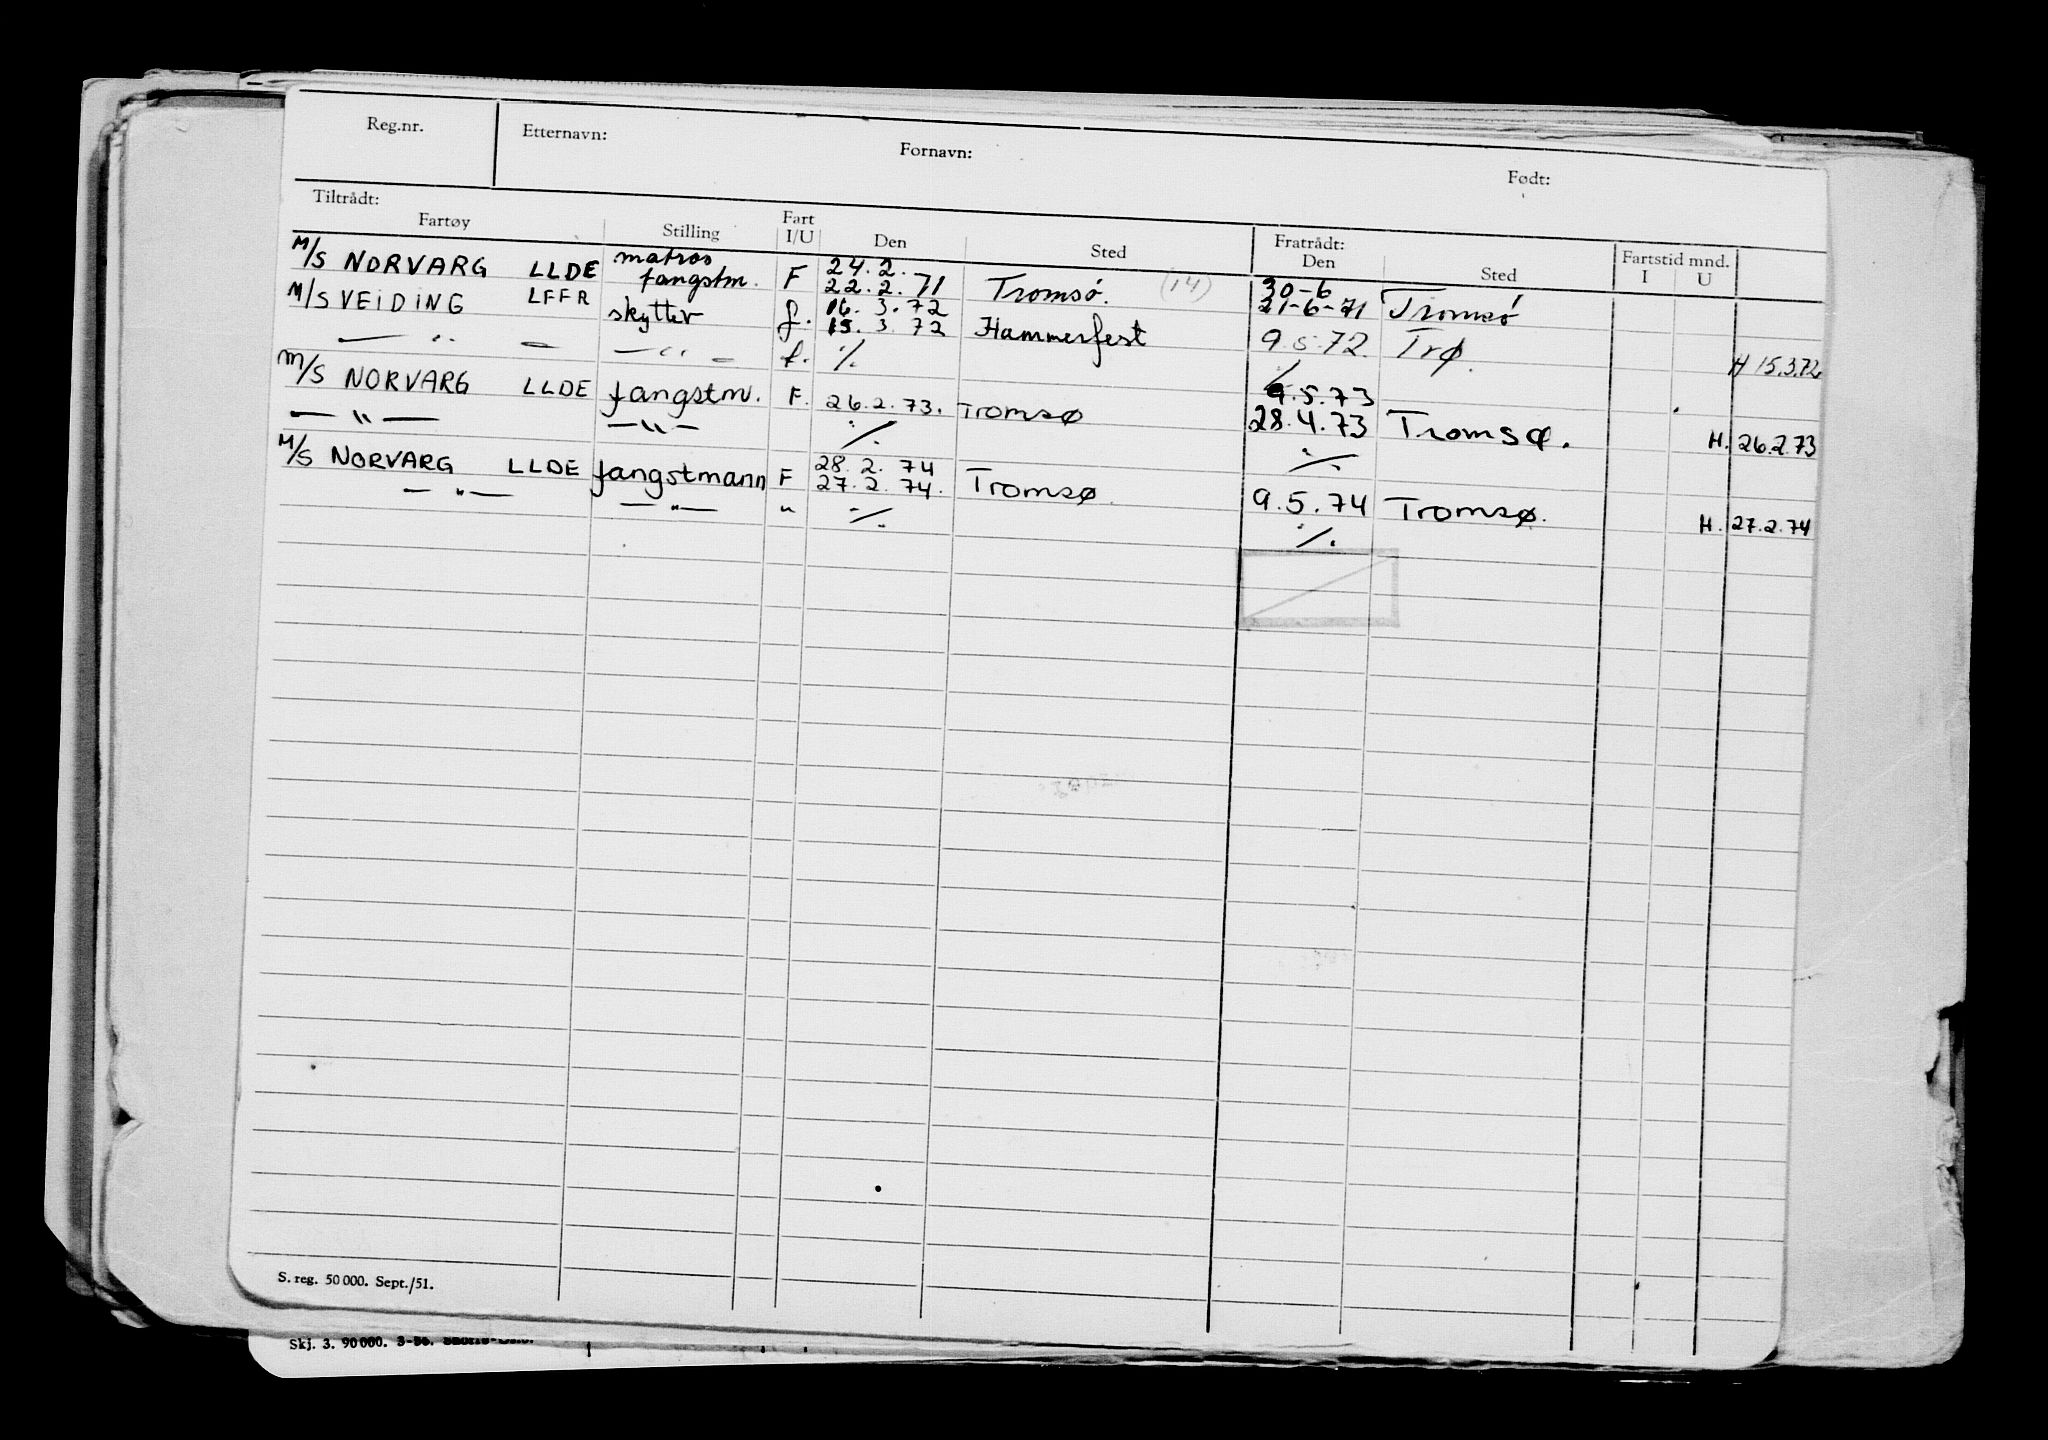 Reg.nr. Etternavn: Fornavn: Født:
Tiltrådt: Fratrådt:
Fartøy Stilling Fart I/U Den Sted Den Sted Fartstid mnd. I U
M/S NORVARG LLDE matros fangstm. F 24.2. 22.2.71 Tromsö. (14) 30-6 21-6-71 Tromsö
M/S VEIDING LFFR skytter f. 16.3.72 15.3.72 Hammerfest 9.5.72. Trø. H 15.3.72
— " — — " — f. ·/.  ·/.
M/S NORVARG LLDE fangstm. F. 26.2.73. Tromsø 9.5.73 28.4.73 Tromsø. H. 26.2.73
— " — — " — ·/. ·/.
M/S NORVARG LLDE fangstmann F 28.2.74 27.2.74. Tromsø. 9.5.74 Tromsø. H. 27.2.74
— " — — " — " ·/. ·/.
S. reg. 50 000. Sept./51.
Skj. 3. 90 000. 3-56.